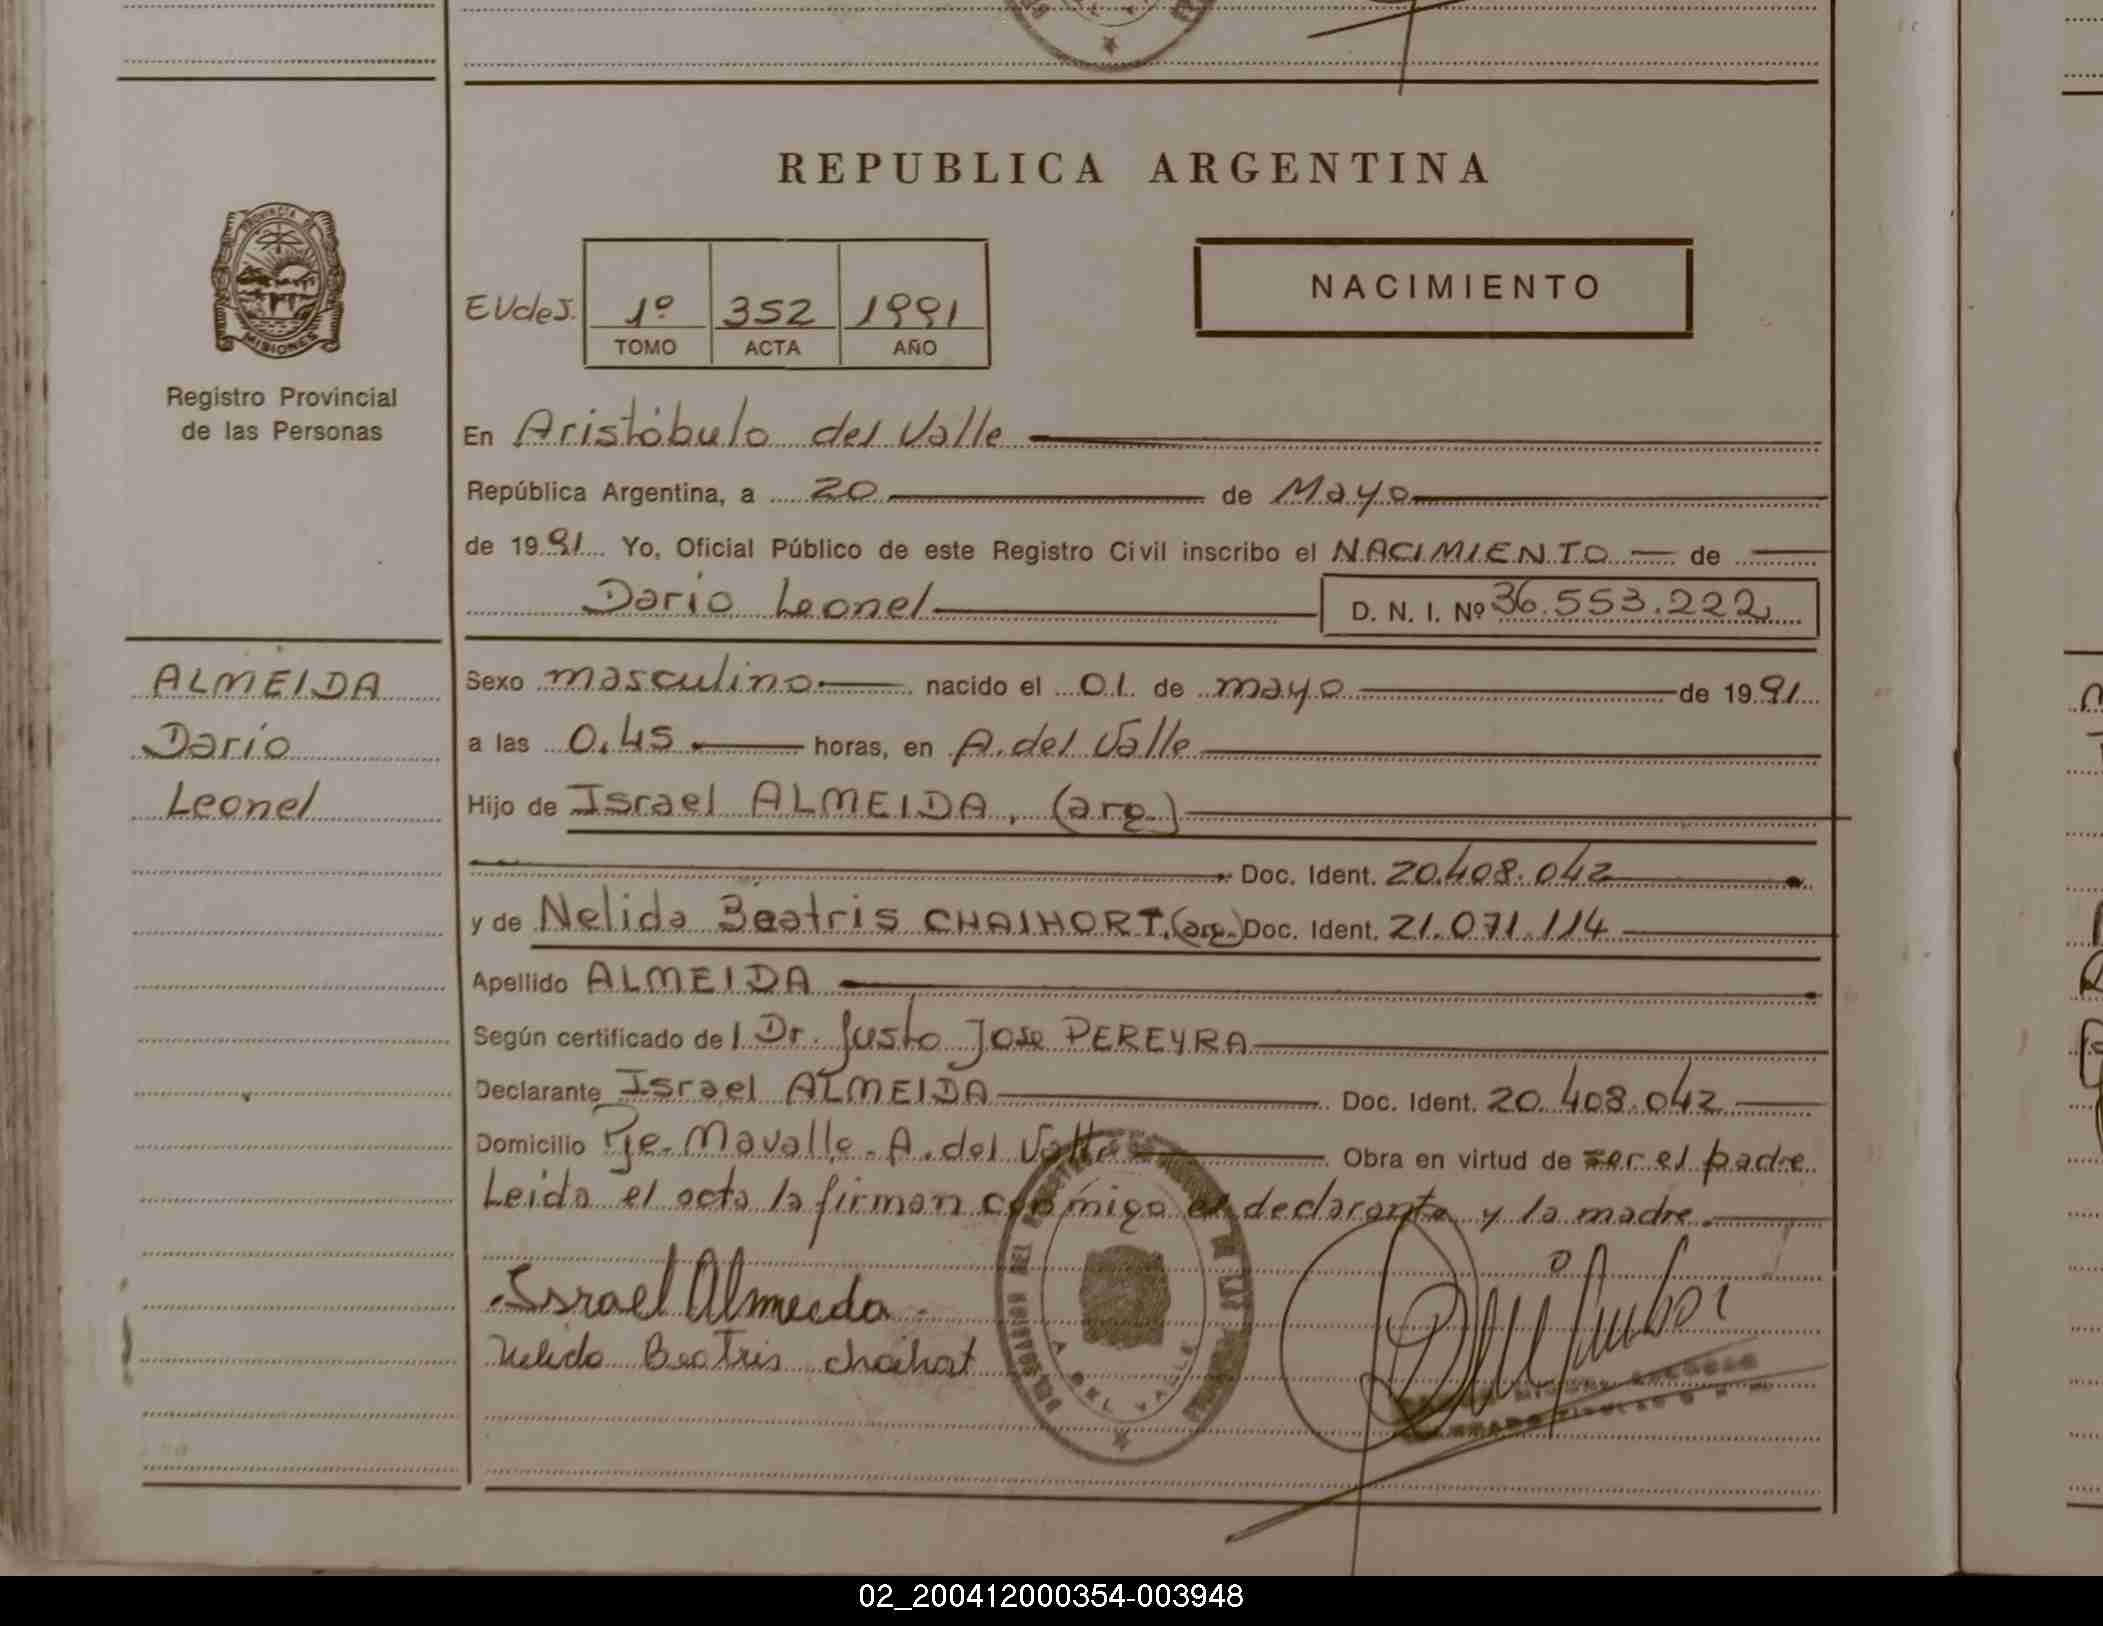 REPUBLICA ARGENTINA
PROVINCIA DE
MISIONES
Registro Provincial
de las Personas
NACIMIENTO
EVdeJ. 1º 352 1991
TOMO ACTA AÑO
En Aristóbulo del Valle
República Argentina, a 20 de Mayo
de 1991 Yo, Oficial Público de este Registro Civil inscribo el NACIMIENTO de
Dario Leonel D. N. I. Nº 36.553.222
ALMEIDA
Dario
Leonel
Sexo masculino nacido el 01 de mayo de 1991
a las 0,45 horas, en A. del Valle
Hijo de Israel ALMEIDA, (arg.)
Doc. Ident. 20.408.042
y de Nelida Beatris CHAIHORT, (arg.) Doc. Ident. 21.071.114
Apellido ALMEIDA
Según certificado del Dr. Justo Jose PEREYRA
Declarante Israel ALMEIDA Doc. Ident. 20.408.042
Domicilio Pje. Mavalle - A. del Valle Obra en virtud de ser el padre
Leida el acta la firman conmigo el declarante y la madre.
Israel Almeida
Nelida Beatris chaihort
A. DEL VALLE
02_200412000354-003948